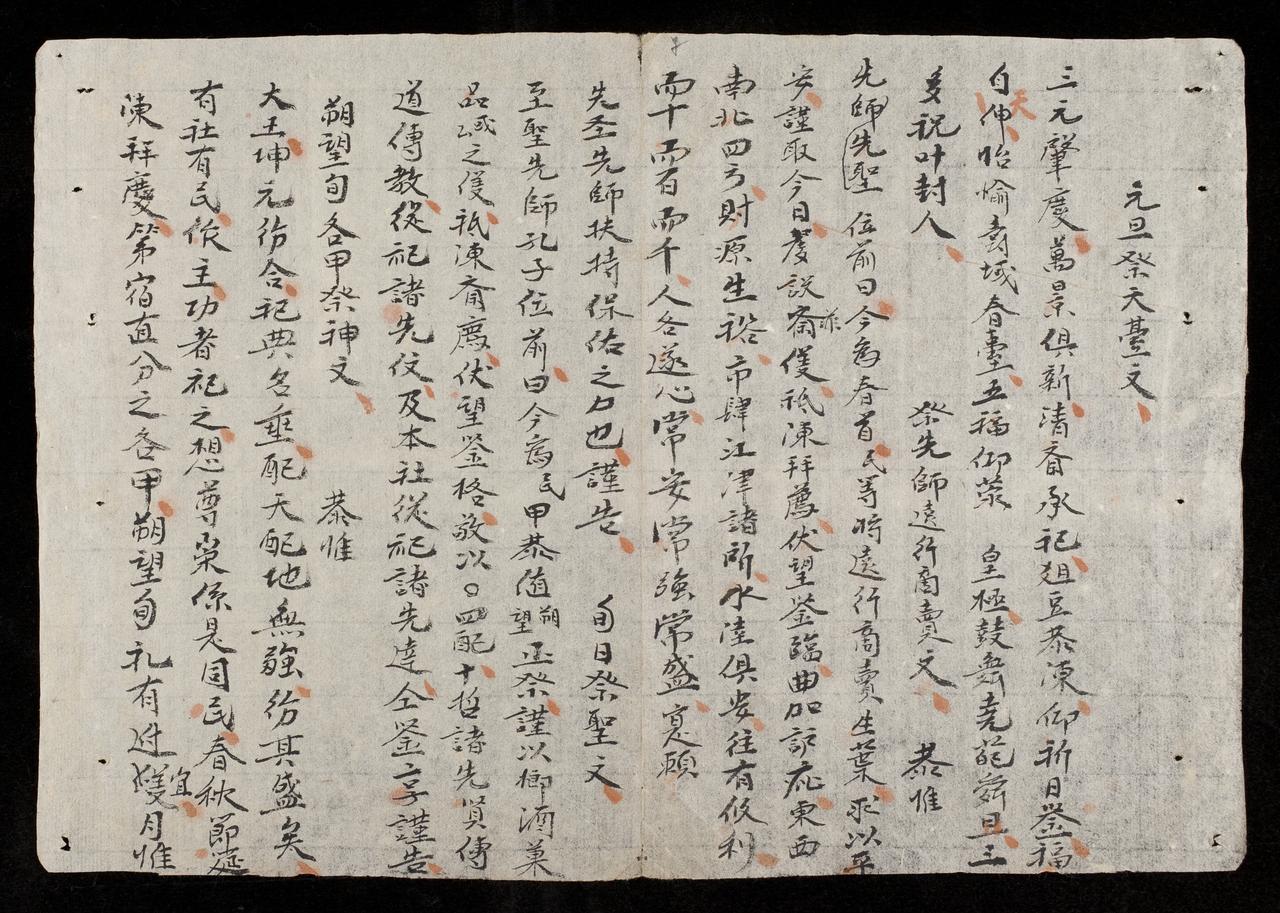 元旦祭天臺文
三元肇慶萬景俱新清斎承祀俎豆恭陳仰祈日鉴福
自天申怡愉壽域春臺五福仰蒙 皇極鼓舞堯葩舜旦三
多祝叶封人 祭先師遠行商賣文 恭惟
先師先聖位前曰今為春首民等時遠行商賣生業求以平
安謹取今日孝設齋筵祇陳拜薦伏望鉴臨曲加庇東西
南北四方財源生裕市肆江津諸所水陸俱安往有攸利
而十而百而千人各遂心常安常強常盛寔頼
先圣先師扶持保佑之力也謹告 旬日祭聖文
至聖先師孔子位前曰今為民甲恭值朔望丞祭謹以榔酒菓
品或之筵祇陳齋慶伏望鉴格敬以〇四配十哲諸先賢傳
道傳教從祀諸先佼及本社從祀諸先達仝鉴享謹告
朔望旬各甲祭神文 恭惟
大王坤元彷合祀典名垂配天配地無疆彷其盛矣
有社有民作主功者祀之想尊崇係是同民春秋節筵
陳拜慶第宿直分之各甲朔望旬礼有进宜雙月惟